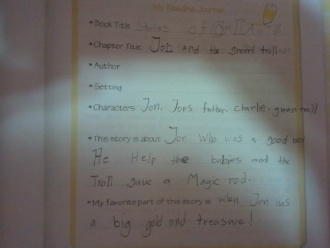 My Reading Journal
•Book Title Stories of
•Chapter Title Jon and the green troll
•Author
•Setting
•Characters Jon, Jons father, charlie, green troll
•This story is about Jon Who was a good boy
He Help the babies and the
Troll gave a Magic rod.
•My favorite part of this story is when Jon
a big gold and treasure!